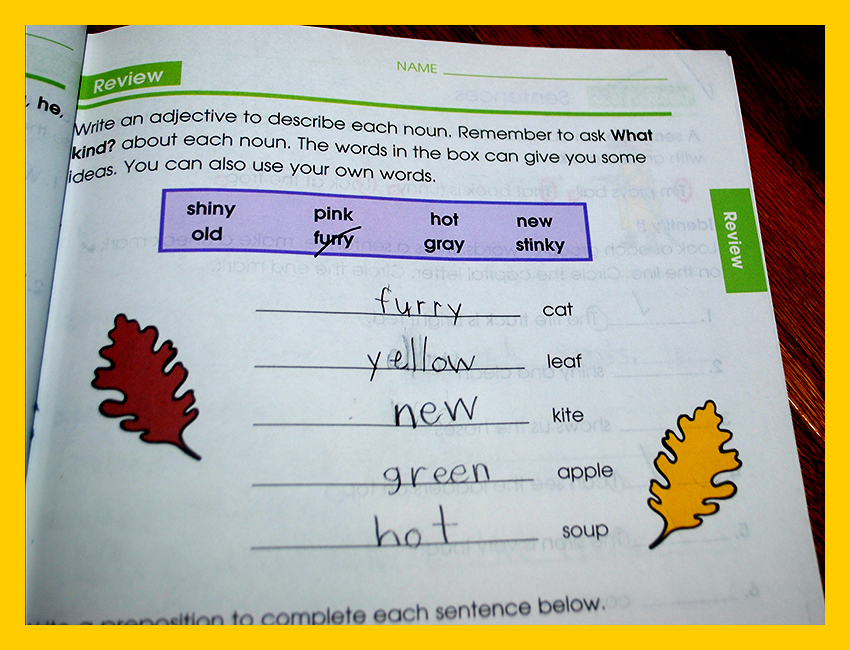 , he,
Review
NAME
Write an adjective to describe each noun. Remember to ask What
kind? about each noun. The words in the box can give you some
ideas. You can also use your own words.
shiny pink hot new
old furry gray stinky
Review
furry cat
yellow leaf
new kite
green apple
hot soup
a preposition to complete each sentence below.